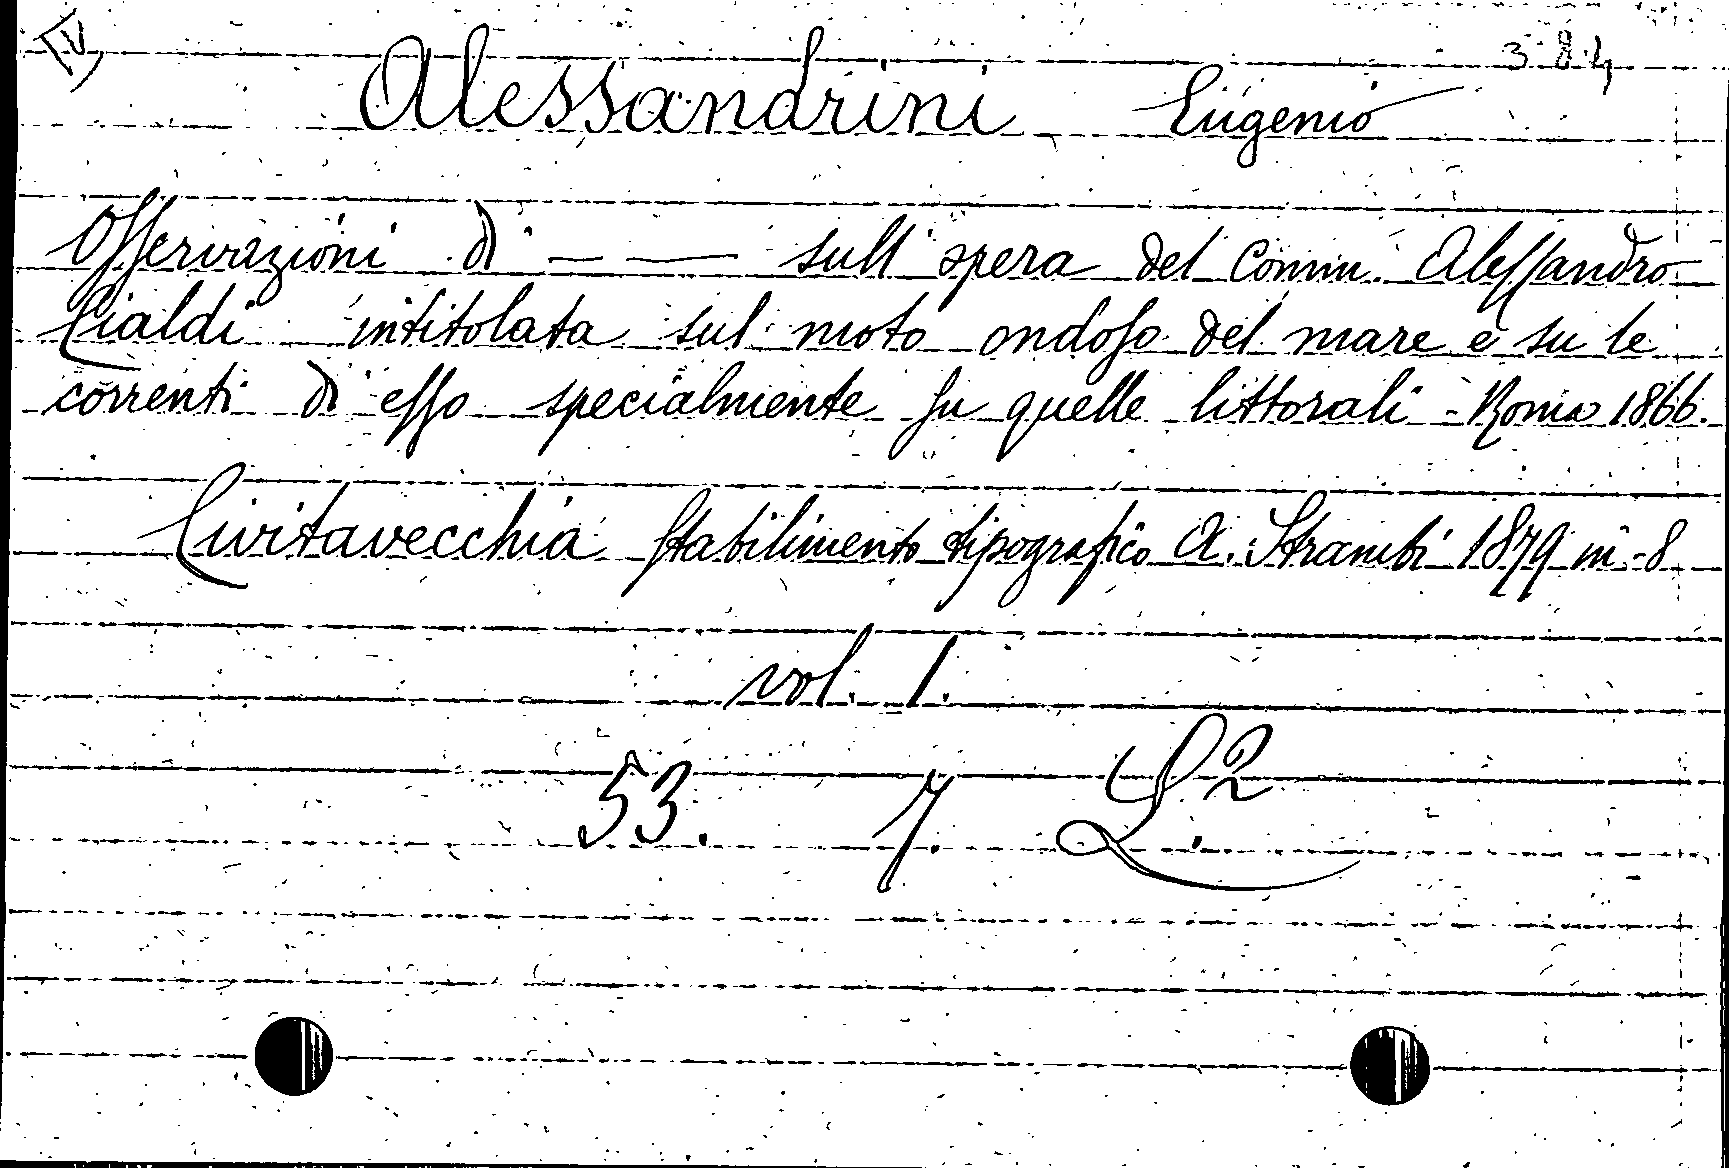 IV 384
Alessandrini Eugenio
Osservazioni di — — sull'opera del Comm. Alessandro
Cialdi intitolata sul moto ondoso del mare e su le
correnti di esso specialmente su quelle littorali - Roma 1866.
Civitavecchia Stabilimento tipografico A. Strambi 1879 in-8
vol. 1.
53. 7. L.2